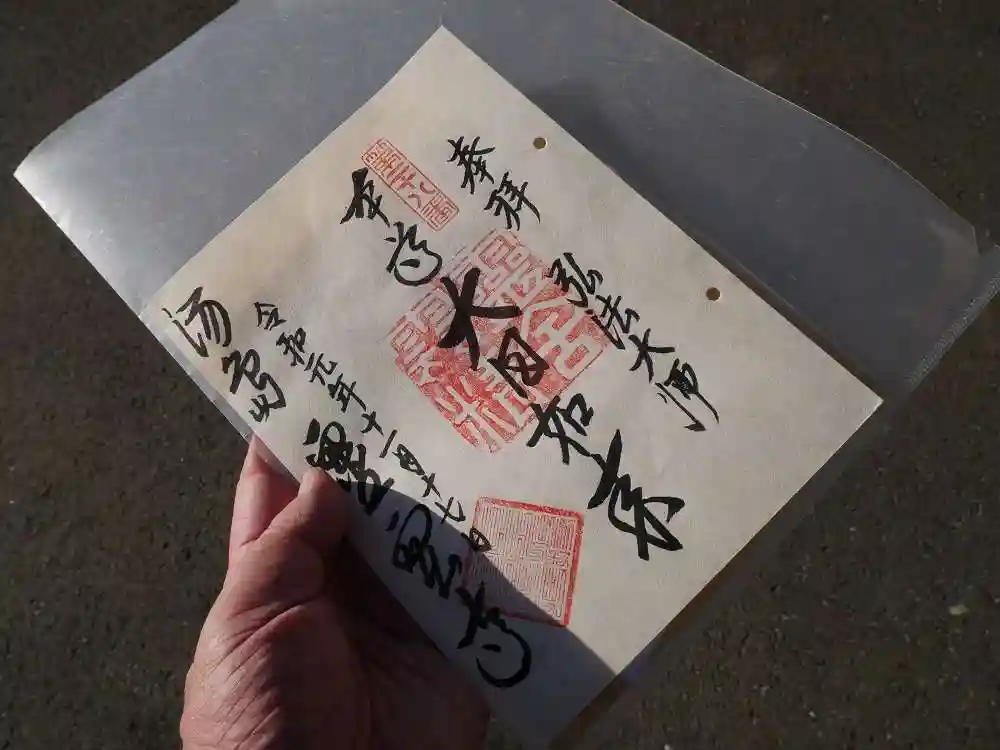 奉拝 弘法大師
本尊 大日如来
令和元年十一月十七日
湯島 靈雲寺